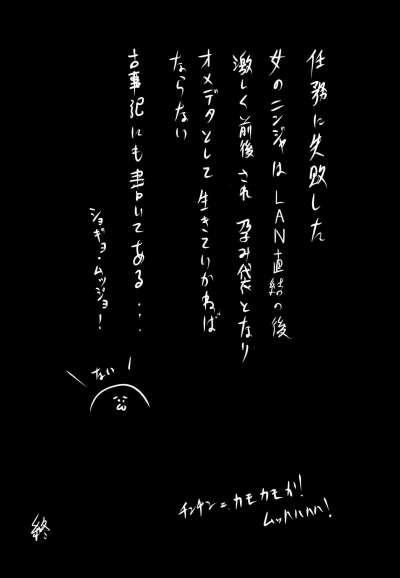 任務に失敗した
女のニンジャはLAN直結の後
激しく前後され孕み袋となり
オメデタとして生きていかねば
ならない
古事記にも書いてある…
ショギョ・ムッジョ!
ない!
チンチン ニ カモカモか!
ムッハハハ!
終